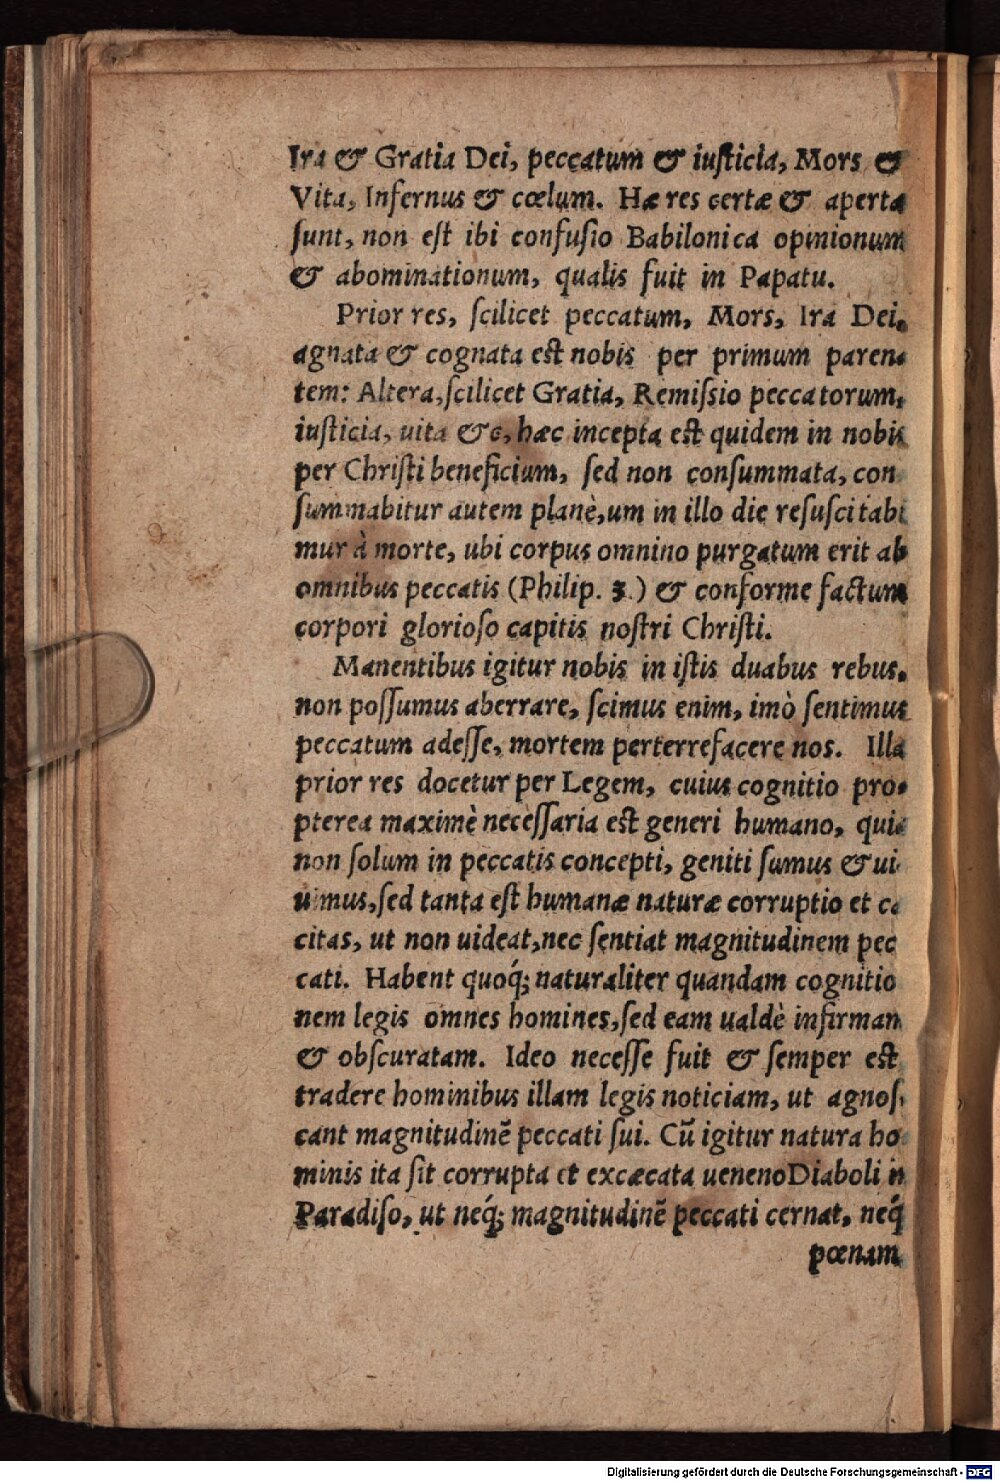 Ira & Gratia Dei, peccatum & iuſticia, Mors &
Vita, Infernus & cœlum. Hæ res certæ & aperta
ſunt, non eſt ibi confuſio Babilonica opinionum
& abominationum, qualis fuit in Papatu.
Prior res, ſcilicet peccatum, Mors, Ira Dei,
agnata & cognata eſt nobis per primum paren-
tem: Altera,ſcilicet Gratia, Remiſsio peccatorum,
iuſticia, uita &c, hæc incepta eſt quidem in nobis
per Chriſti beneficium, ſed non conſummata, con
ſummabitur autem planè,um in illo die reſuſcitabi
mur à morte, ubi corpus omnino purgatum erit ab
omnibus peccatis (Philip. 3.) & conforme factum
corpori glorioſo capitis noſtri Chriſti.
Manentibus igitur nobis in iſtis duabus rebus,
non poſſumus aberrare, ſcimus enim, imò ſentimus
peccatum adeſſe, mortem perterrefacere nos. Illa
prior res docetur per Legem, cuius cognitio pro-
pterea maximè neceſſaria eſt generi humano, quia
non ſolum in peccatis concepti, geniti ſumus & ui
uimus,ſed tanta eſt humanæ naturæ corruptio et cæ
citas, ut non uideat,nec ſentiat magnitudinem pec
cati. Habent quoq́; naturaliter quandam cognitio
nem legis omnes homines,ſed eam ualdè infirmam
& obſcuratam. Ideo neceſſe fuit & ſemper eſt
tradere hominibus illam legis noticiam, ut agnoſ-
cant magnitudinẽ peccati ſui. Cũ igitur natura ho
minis ita ſit corrupta et excæcata ueneno Diaboli in
Paradiſo, ut neq́; magnitudinẽ peccati cernat, neq́
pœnam
Digitalisierung gefördert durch die Deutsche Forschungsgemeinschaft - DFG